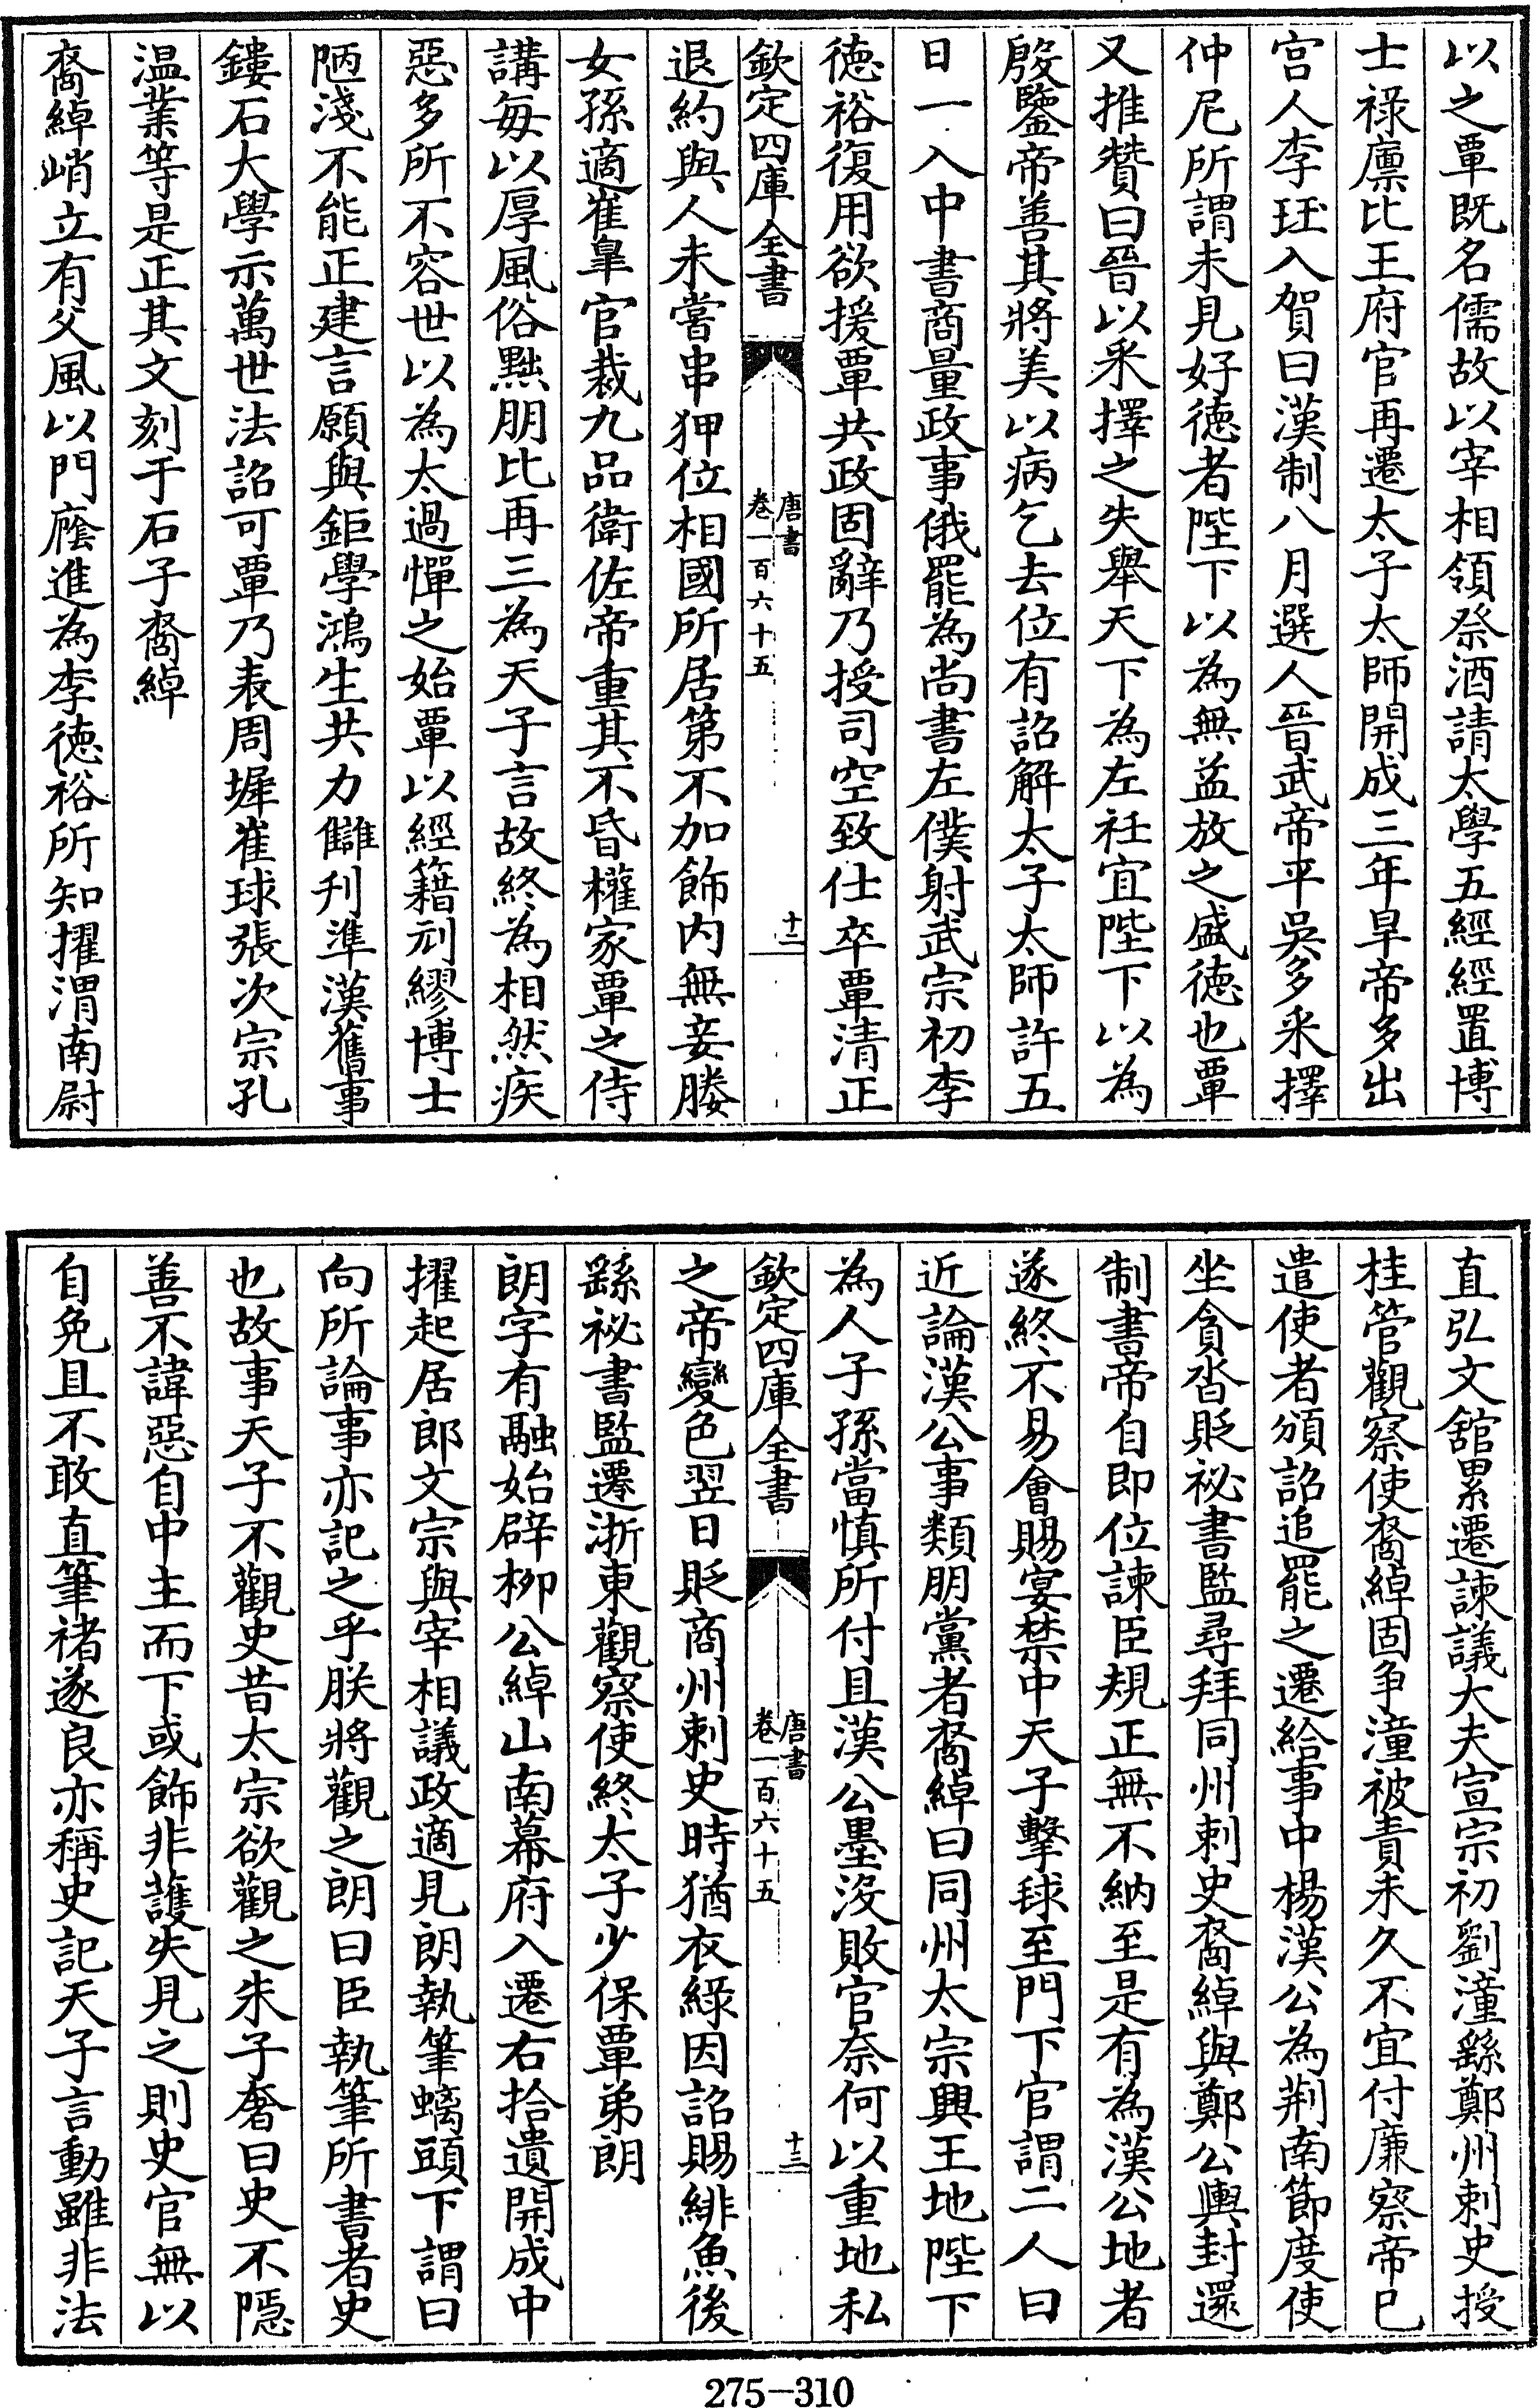 以之覃既名儒故以宰相領祭酒請太學五經經置博
士祿廪比王府官再遷太子太師開成三年旱帝多出
宫人李珏入賀曰漢制八月選人晉武帝平吳多采擇
仲尼所謂未見好徳者陛下以為無益放之盛徳也覃
又推贊曰晉以采擇之失舉天下為左衽宜陛下以為
殷鑒帝善其將美以病乞去位有詔解太子太師許五
日一入中書商量政事俄罷為尚書左僕射武宗初李
徳裕復用欲援覃共政固辭乃授司空致仕卒覃清正
欽定四庫全書
唐書
卷一百六十五
十二
退約與人未嘗串狎位相國所居第不加飾内無妾媵
女孫適崔臯官裁九品衛佐帝重其不昏權家覃之侍
講每以厚風俗黜朋比再三為天子言故終為相然疾
惡多所不容世以為太過憚之始覃以經籍刓繆博士
陋淺不能正建言願與鉅學鴻生共力讎刋準漢舊事
鏤石大學示萬世法詔可覃乃表周墀崔球張次宗孔
温業等是正其文刻于石子裔綽
裔綽峭立有父風以門廕進為李徳裕所知擢渭南尉
直弘文舘累遷諫議大夫宣宗初劉潼繇鄭州刺史授
桂管觀察使裔綽固争潼被責未久不宜付廉察帝已
遣使者頒詔追罷之遷給事中楊漢公為荆南節度使
坐貪沓貶祕書監尋拜同州刺史裔綽與鄭公輿封還
制書帝自即位諫臣規正無不納至是有為漢公地者
遂終不易會賜宴禁中天子擊球至門下官謂二人曰
近論漢公事類朋黨者裔綽曰同州太宗興王地陛下
為人子孫當慎所付且漢公墨沒敗官奈何以重地私
欽定四庫全書
唐書
卷一百六十五
十三
之帝變色翌日貶商州刺史時猶衣綠因詔賜緋魚後
繇祕書監遷浙東觀察使終太子少保覃弟朗
朗字有融始辟栁公綽山南幕府入遷右拾遺開成中
擢起居郎文宗與宰相議政適見朗執筆螭頭下謂曰
向所論事亦記之乎朕將觀之朗曰臣執筆所書者史
也故事天子不觀史昔太宗欲觀之朱子奢曰史不隱
善不諱惡自中主而下或飾非護失見之則史官無以
自免且不敢直筆禇遂良亦稱史記天子言動雖非法
275-310